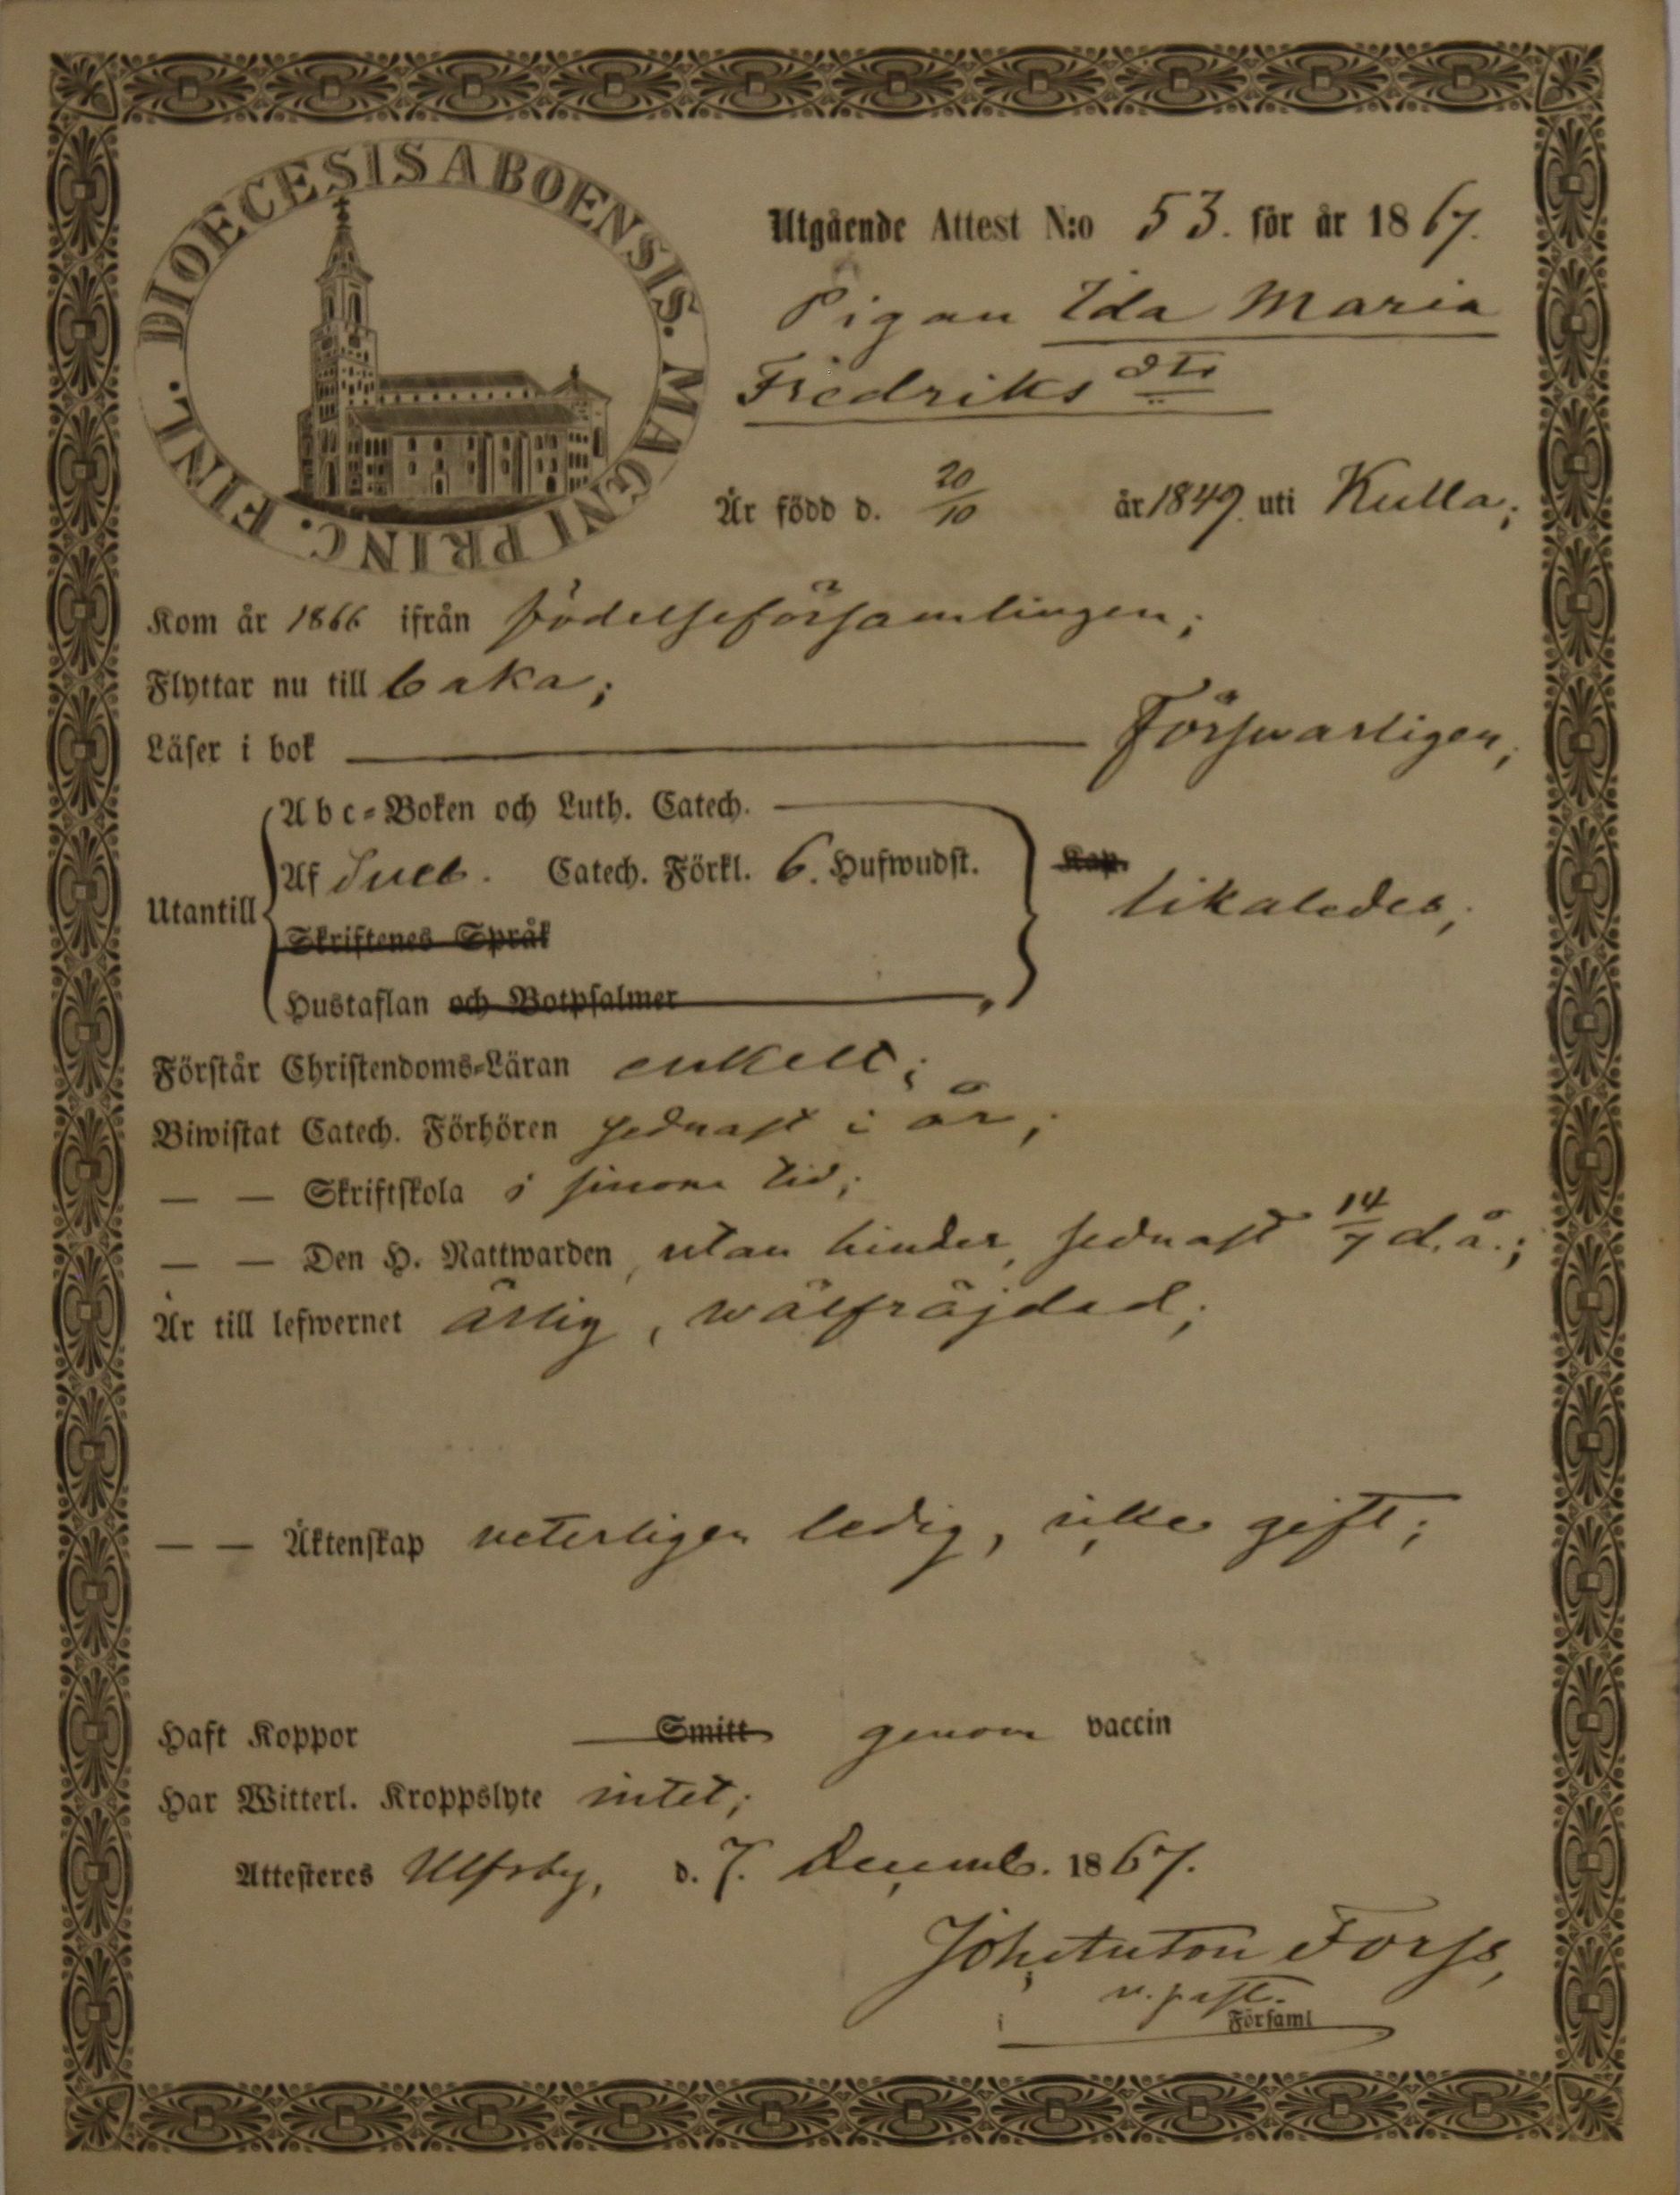 DIOECESIS ABOENSIS. MAGNI PRINC. FINL.
Utgående Attest N:o 53. för år 1867.
Pigan Ida Maria
Fredriks dtr
Är född d. 20/10 år 1849. uti Kulla;
Kom år 1866 ifrån födelseförsamlingen;
Flyttar nu till baka;
Läser i bok Försvarligen;
Abc-Boken och Luth. Catech.
Utantill Af Sveb. Catech. Förkl. 6. Hufwudst. Kap. likaledes;
Skriftenes Språk
Hustaflan och Botpsalmer
Förstår Christendoms-Läran enkelt;
Biwistat Catech. Förhören sednast i år;
— — Skriftskola i sinom tid;
— — Den H. Nattwarden, utan hinder, sednast 14/7 d. å.;
Är till lefwernet ärlig, wälfräjdad;
— — Äktenskap veterligen ledig, icke gift;
Haft Koppor Smitt genom vaccin
Har Witterl. Kroppslyte intet;
Attesteres Ulfsby, d. 7. Decemb. 1867.
Joh. Anton Forss,
v. past.
i Församl